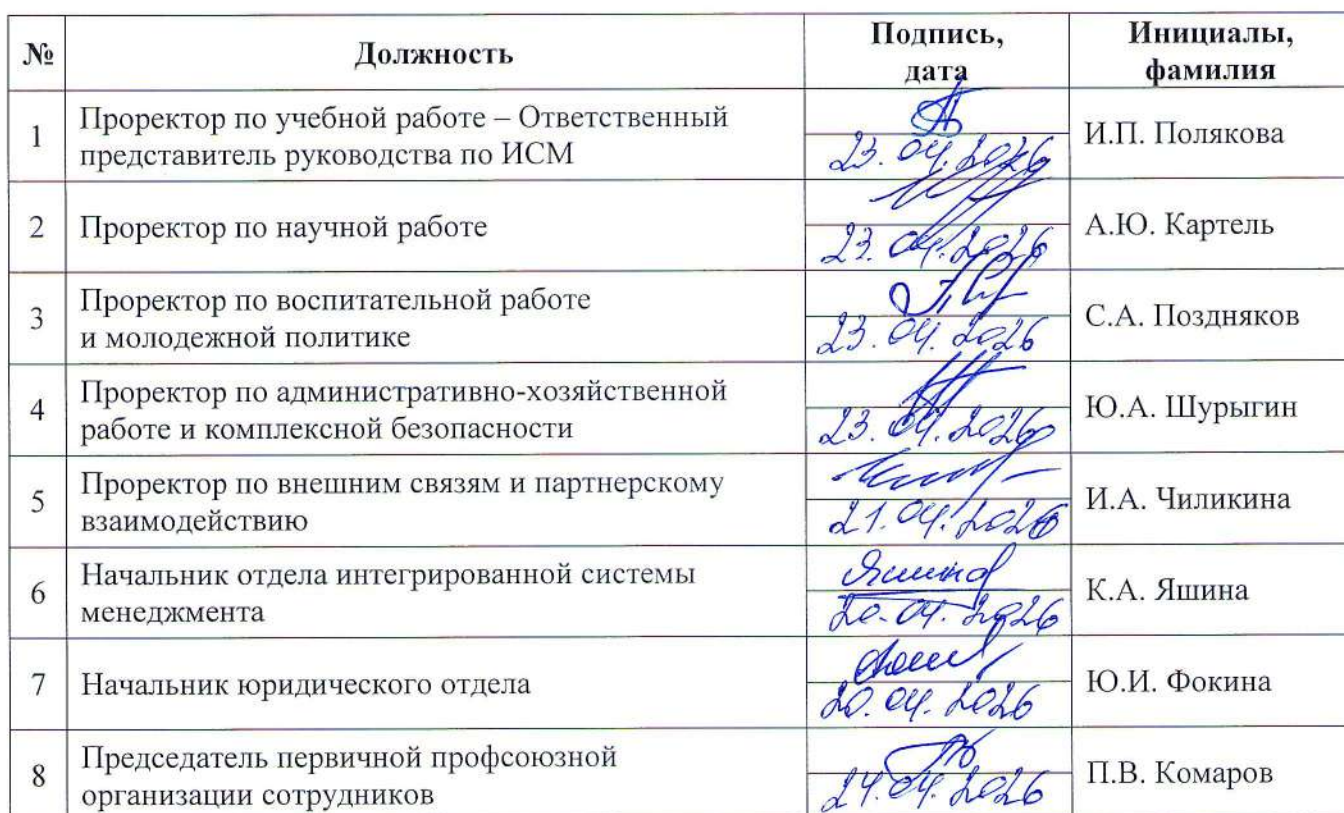 № Должность Подпись, Инициалы,
дата фамилия
1 Проректор по учебной работе – Ответственный
представитель руководства по ИСМ
23.04.2026
И.П. Полякова
2 Проректор по научной работе
23.04.2026
А.Ю. Картель
3 Проректор по воспитательной работе
и молодежной политике
23.04.2026
С.А. Поздняков
4 Проректор по административно-хозяйственной
работе и комплексной безопасности
23.04.2026
Ю.А. Шурыгин
5 Проректор по внешним связям и партнерскому
взаимодействию
21.04.2026
И.А. Чиликина
6 Начальник отдела интегрированной системы
менеджмента
20.04.2026
К.А. Яшина
7 Начальник юридического отдела
20.04.2026
Ю.И. Фокина
8 Председатель первичной профсоюзной
организации сотрудников
24.04.2026
П.В. Комаров